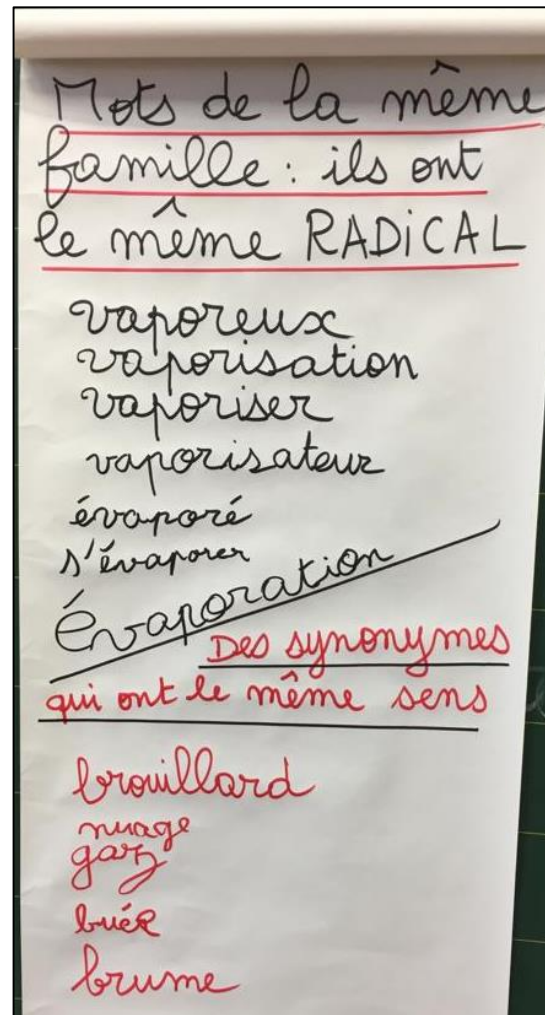 Mots de la même
famille : ils ont
le même RADICAL
vaporeux
vaporisation
vaporiser
vaporisateur
évaporé
s'évaporer
Évaporation
Des synonymes
qui ont le même sens
brouillard
nuage
gaz
buée
brume